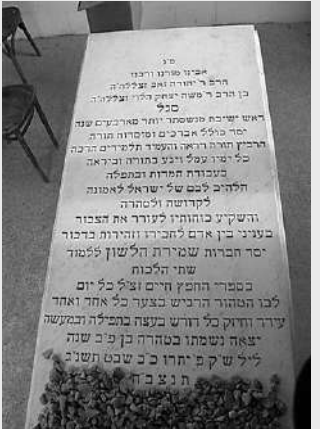 פ"נ
אבינו מורנו ורבנו
הרב ר' יהודה זאב זצללה"ה
בן הרב ר' משה יצחק הלוי זצללה"ה
סגל
ראש ישיבת מנשסתר יותר מארבעים שנה
יסד כולל אברכים ומוסדות תורה
הרביץ תורה ודאה והעמיד תלמידים הרבה
כל ימיו עמל ויגע בתורה וביראה
בעבודת המדות ובתפלה
הלהיב לבם של ישראל לאמונה
לקדושה ולטהרה
והשקיע כוחותיו לעורר את הצבור
בעניני בין אדם לחבירו וזהירות בדבור
יסד חברות שמירת הלשון ללמוד
שתי הלכות
בספרי החפץ חיים זצ"ל כל יום
לבו הטהור הרגיש בצער כל אחד ואחד
עודד וחיזק כל דורש בעצה בתפילה ובמעשה
יצאה נשמתו בטהרה בן פ"ב שנה
ליל ש"ק פ' יתרו כ"ב שבט תשנ"ג
ת נ צ ב "ה